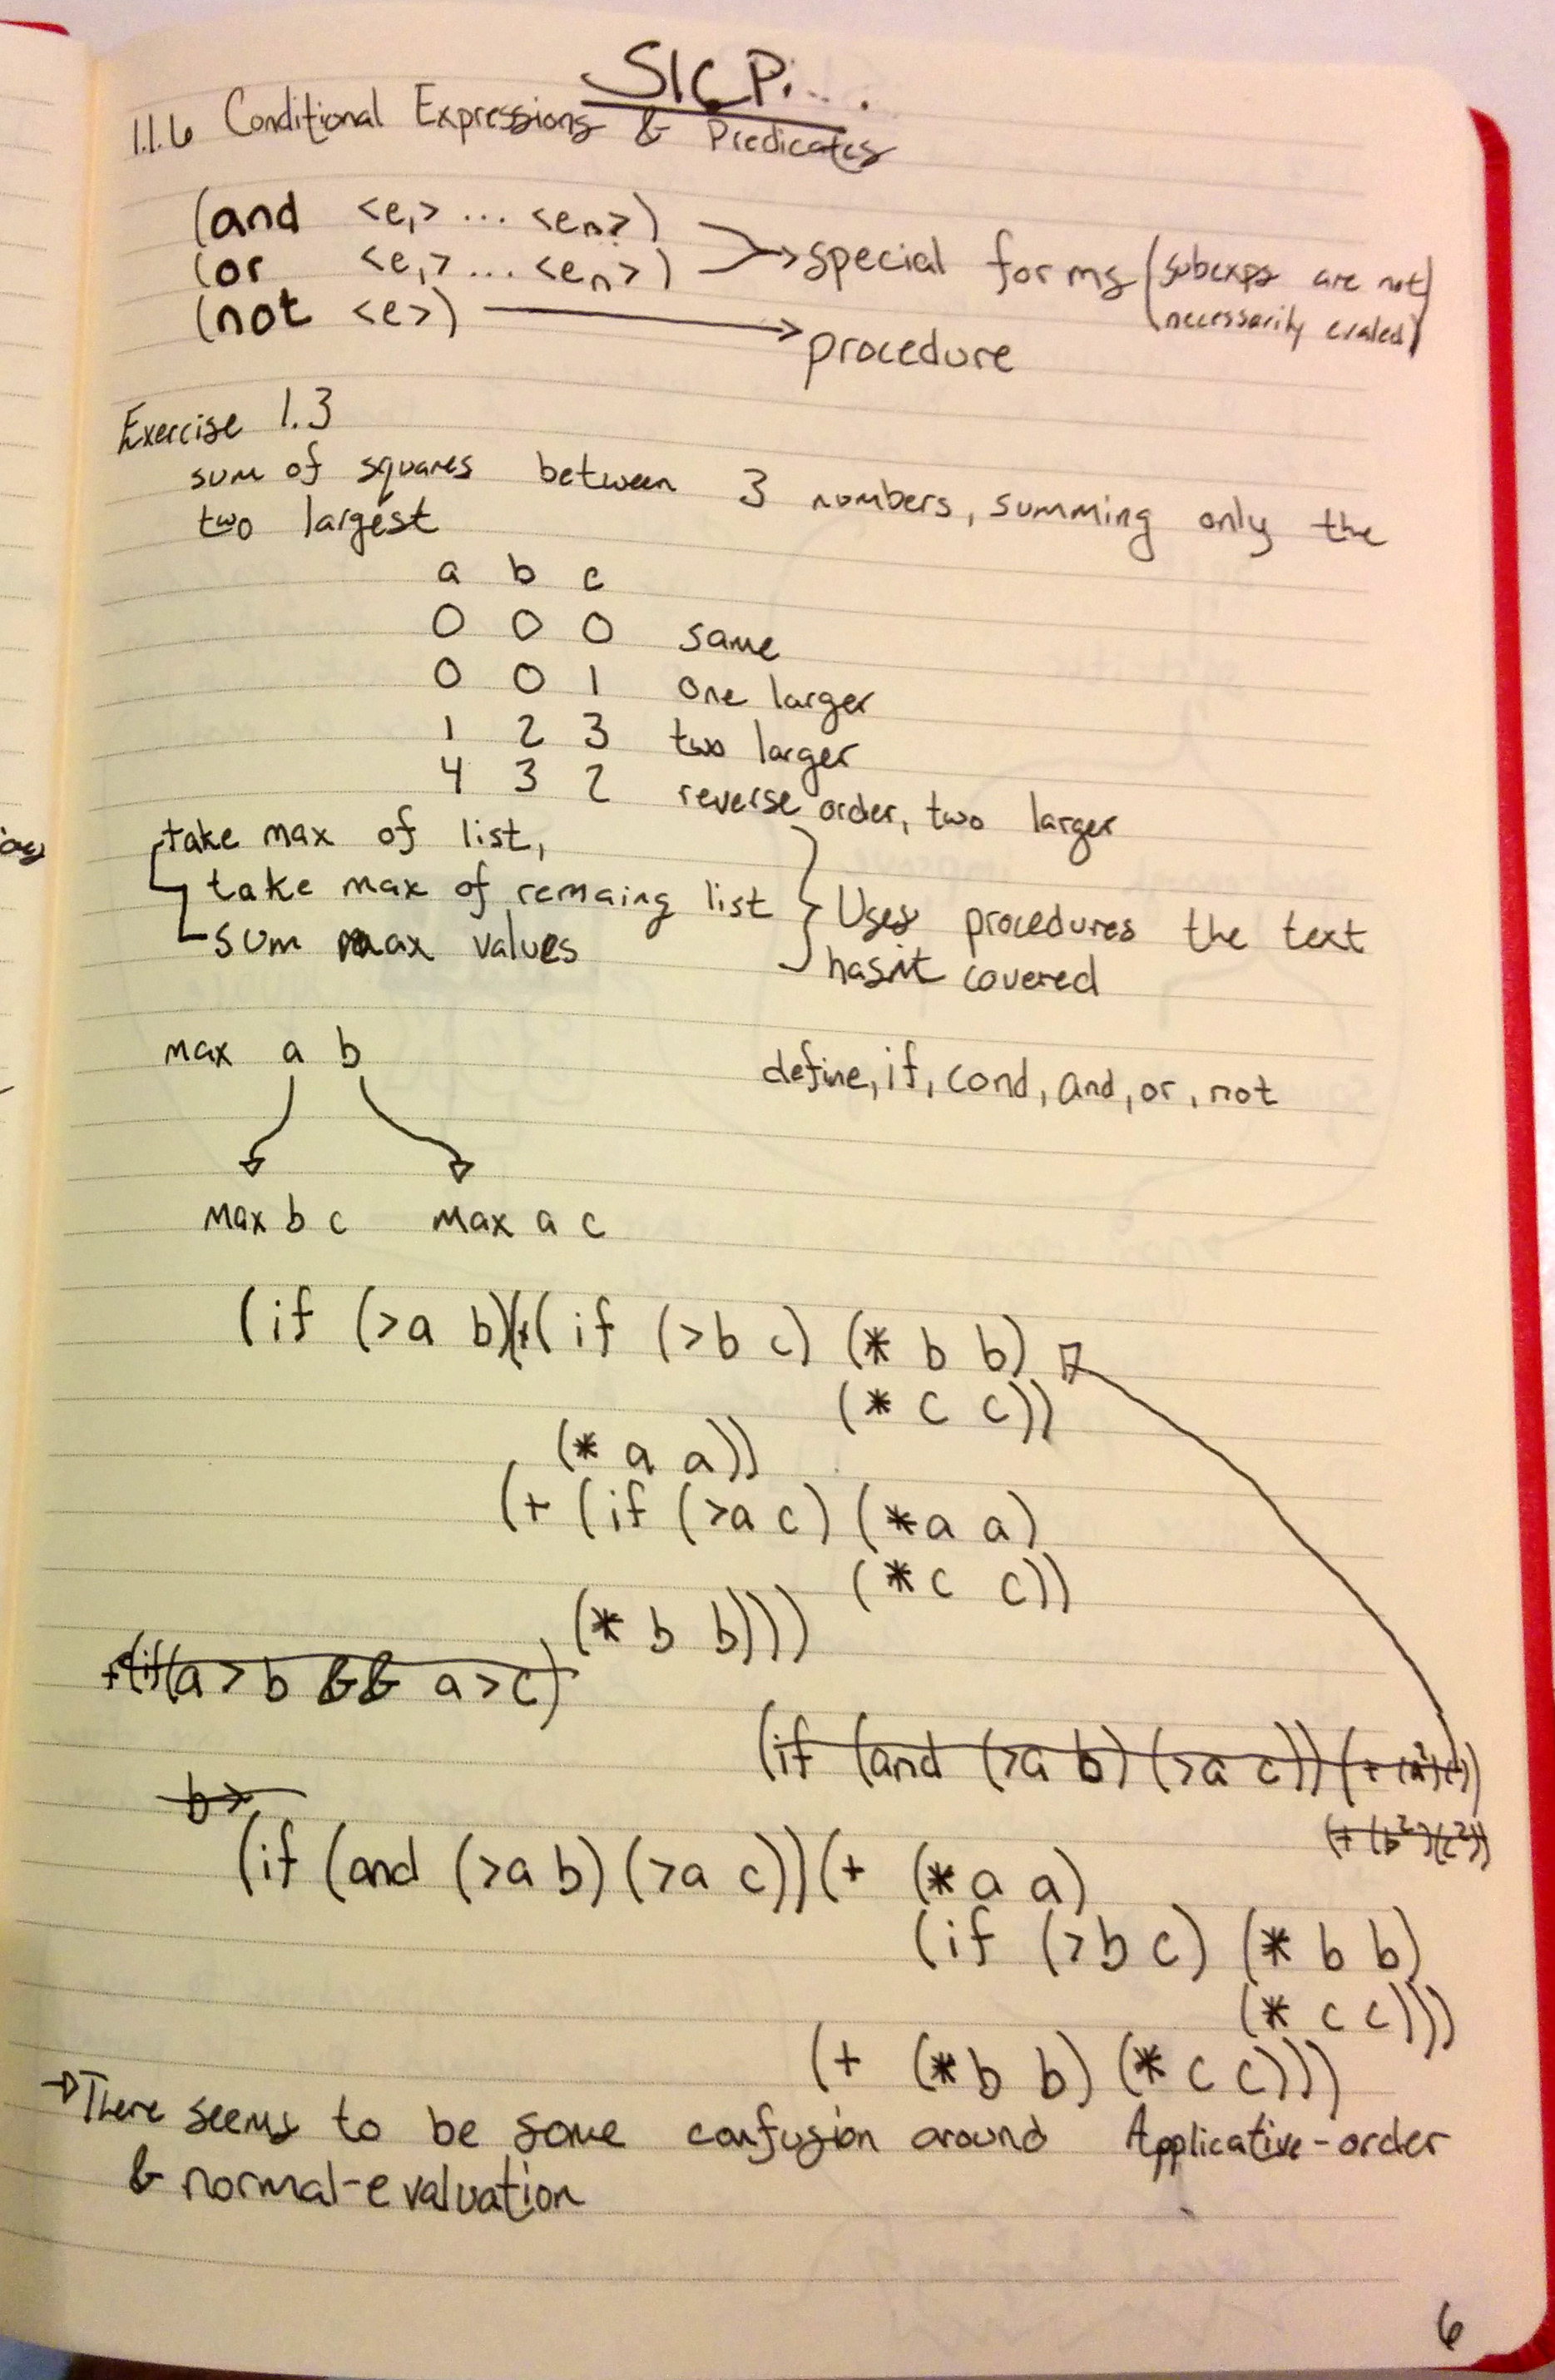 SICP...
1.1.6 Conditional Expressions & Predicates
(and <e₁> ... <eₙ>)
(or <e₁> ... <eₙ>) → special forms (subexps are not
necessarily evaled)
(not <e>) → procedure
Exercise 1.3
sum of squares between 3 numbers, summing only the
two largest
a b c
0 0 0 same
0 0 1 one larger
1 2 3 two larger
4 3 2 reverse order, two larger
take max of list,
take max of remaing list
sum max values
Uses procedures the text
hasn't covered
max a b
define, if, cond, and, or, not
max b c max a c
(if (>a b)(+(if (>b c) (* b b)
(* c c))
(* a a))
(+ (if (>a c) (*a a)
(*c c))
(* b b)))
+(if(a>b && a>c)
(if (and (>a b) (>a c))
(+ (b²)(c²))
b>
(if (and (>a b) (>a c)) (+ (*a a)
(if (>b c) (* b b)
(* c c)))
(+ (*b b) (* c c)))
→There seems to be some confusion around Applicative-order
& normal-evaluation
6